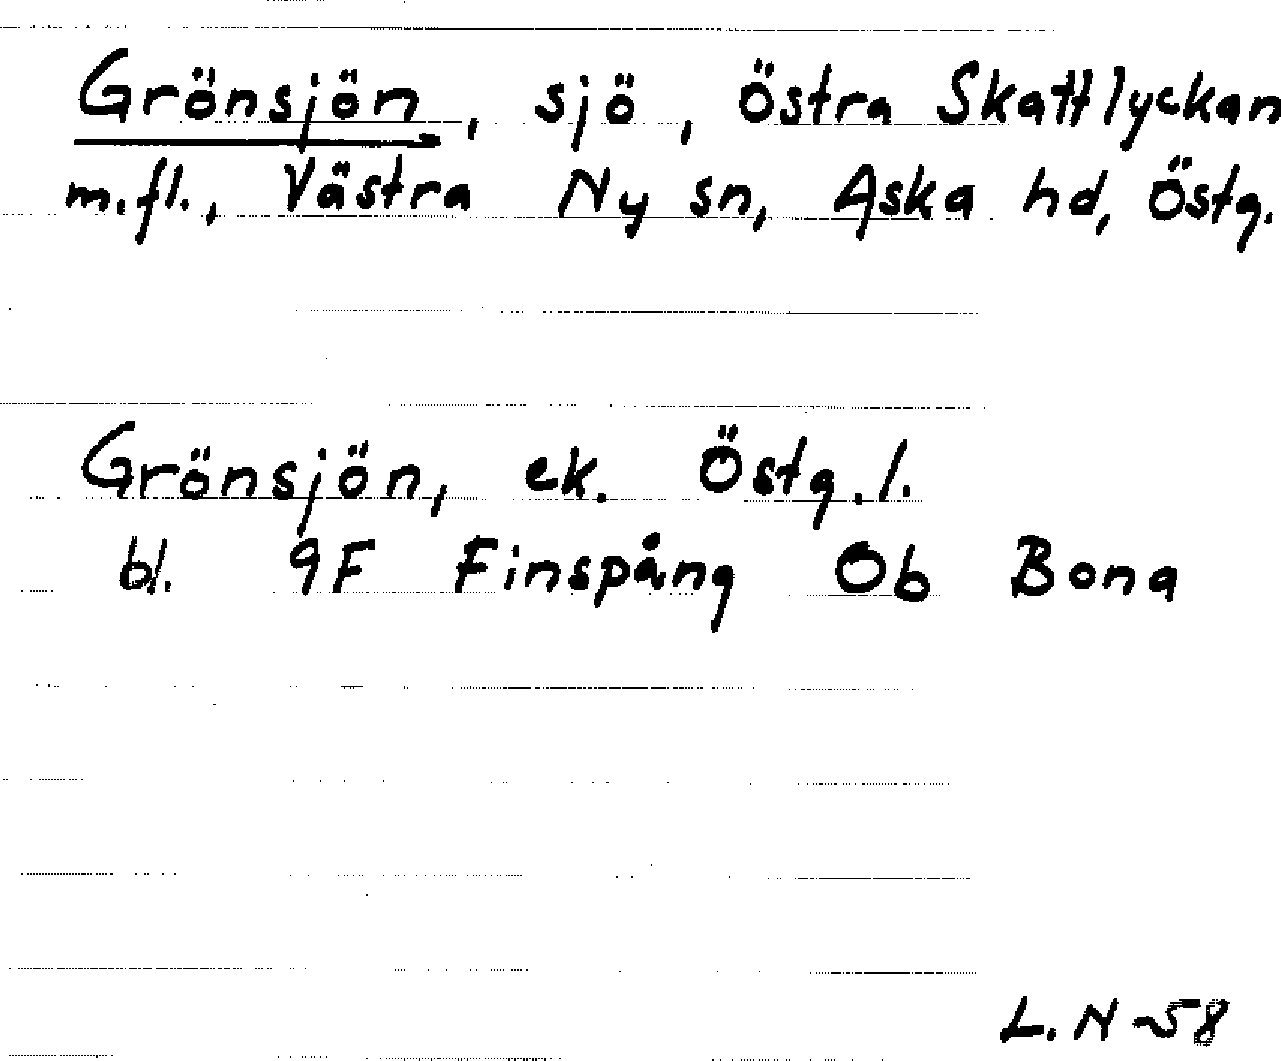 Grönsjön, sjö, Östra Skattlyckan
m.fl., Västra Ny sn, Aska hd, Östg.
Grönsjön, ek. Östg.l.
bl. 9F Finspång Ob Bona
L. N -58